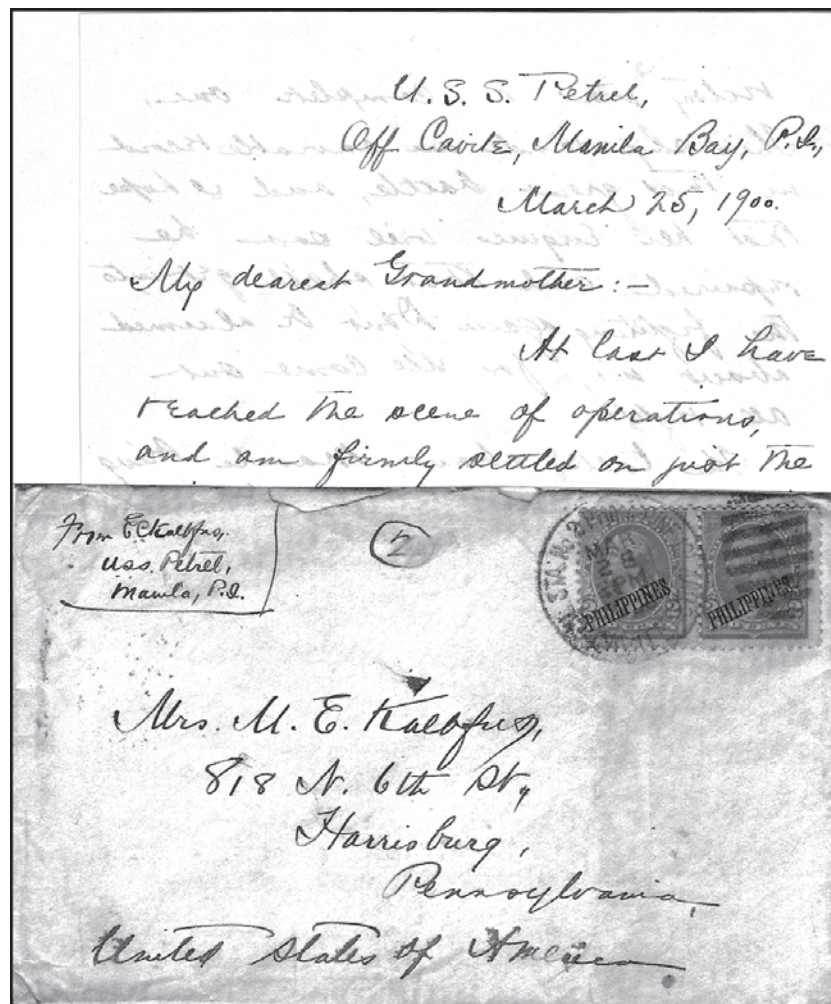 U. S. S. Petrel,
Off Cavite, Manila Bay, P.I.,
March 25, 1900.
My dearest Grandmother:-
At last I have
reached the scene of operations,
and am firmly settled on just the
From E C Kalbfus,
U.S.S. Petrel,
Manila, P.I.
2
STA. No. 2
PHILIPPINES
PHILIPPINES
Mrs. M. E. Kalbfus,
818 N. 6th St,
Harrisburg,
Pennsylvania,
United States of America